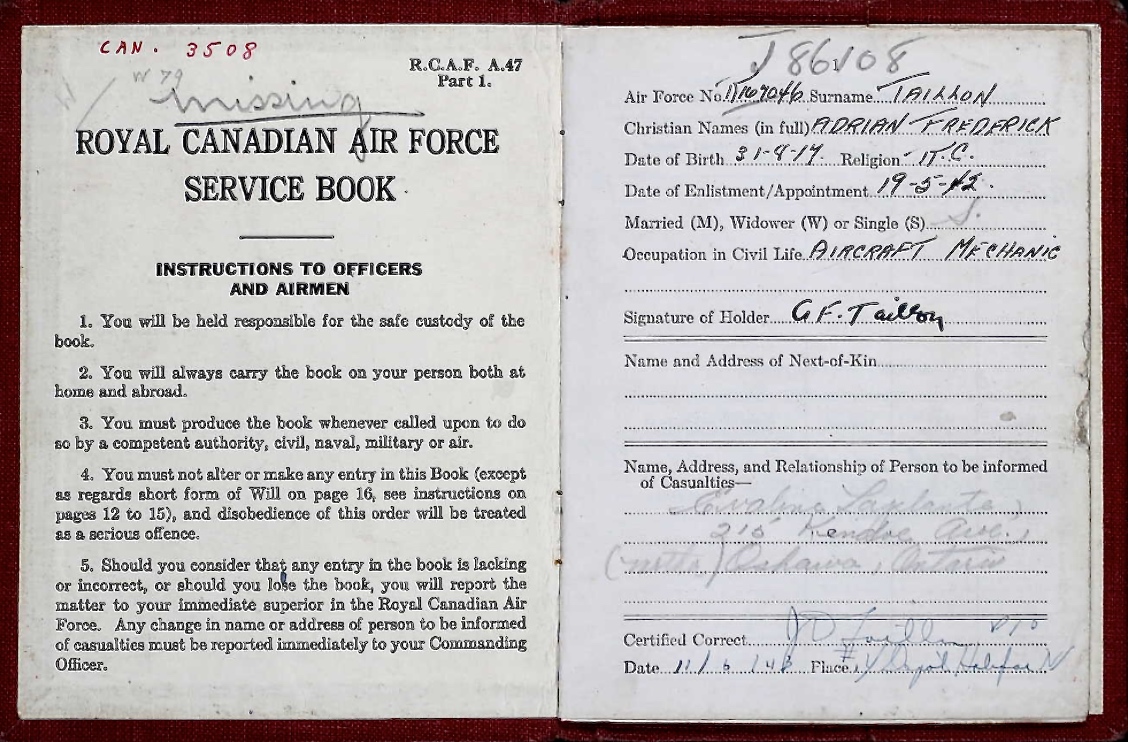 CAN. 3508
W 79
missing
R.C.A.F. A.47
Part 1.
ROYAL CANADIAN AIR FORCE
SERVICE BOOK
INSTRUCTIONS TO OFFICERS
AND AIRMEN
1. You will be held responsible for the safe custody of the
book.
2. You will always carry the book on your person both at
home and abroad.
3. You must produce the book whenever called upon to do
so by a competent authority, civil, naval, military or air.
4. You must not alter or make any entry in this Book (except
as regards short form of Will on page 16, see instructions on
pages 12 to 15), and disobedience of this order will be treated
as a serious offence.
5. Should you consider that any entry in the book is lacking
or incorrect, or should you lose the book, you will report the
matter to your immediate superior in the Royal Canadian Air
Force. Any change in name or address of person to be informed
of casualties must be reported immediately to your Commanding
Officer.
J 86108
Air Force No. R167046 Surname TAILLON
Christian Names (in full) ADRIAN FREDERICK
Date of Birth 31-8-17. Religion R.C.
Date of Enlistment/Appointment 19-5-42.
Married (M), Widower (W) or Single (S) S.
Occupation in Civil Life AIRCRAFT MECHANIC
Signature of Holder A F. Taillon
Name and Address of Next-of-Kin
Name, Address, and Relationship of Person to be informed
of Casualties—
Evalina Laplante,
215 Ave.,
Oshawa, Ontario
Certified Correct
Date 11/6/43 Place Halifax